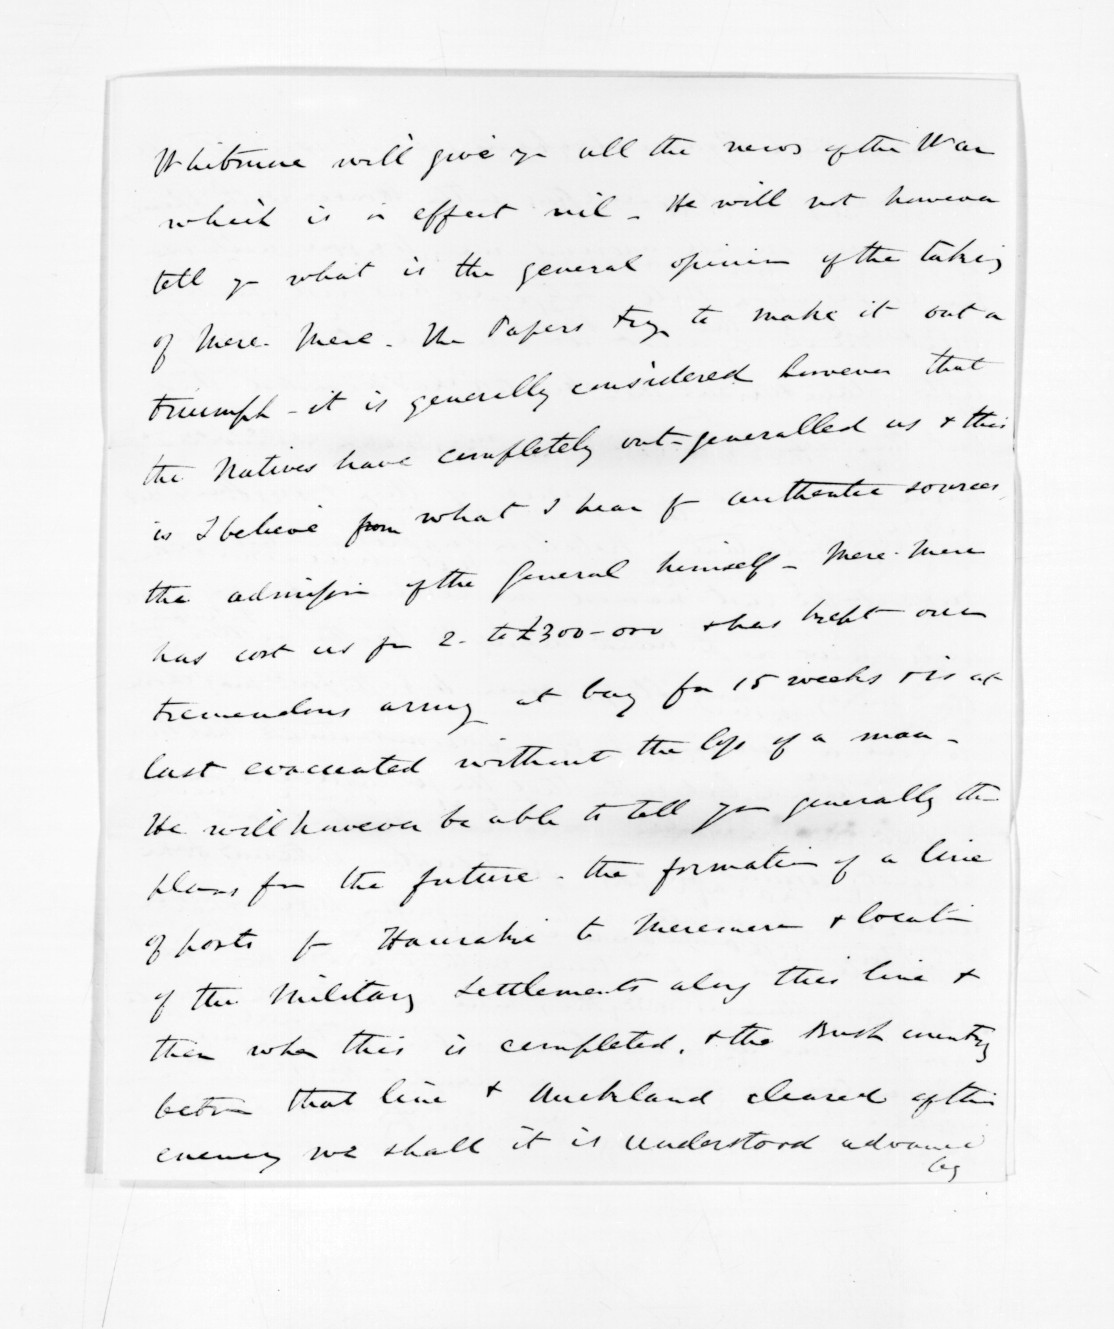 Whitmore will give yr all the news of the War
which is in effect nil - He will not however
tell yr what is the general opinion of the taking
of Mere-Mere - The Papers try to make it out a
triumph - it is generally considered however that
the Natives have completely out-generalled us & this
is I believe from what I hear fr authentic sources
the admission of the General himself - Mere-Mere
has cost us fr 2- to £300-000 & has kept our
tremendous army at bay for 15 weeks & is at
last evacuated without the loss of a man -
He will however be able to tell yr generally the
plans for the future - the formation of a line
of posts fr Hauraki to Meremere & locatn
of the Military Settlements along this line &
then when this is completed, & the Bush country
betwn that line & Auckland cleared of the
enemy we shall it is understood advance
by